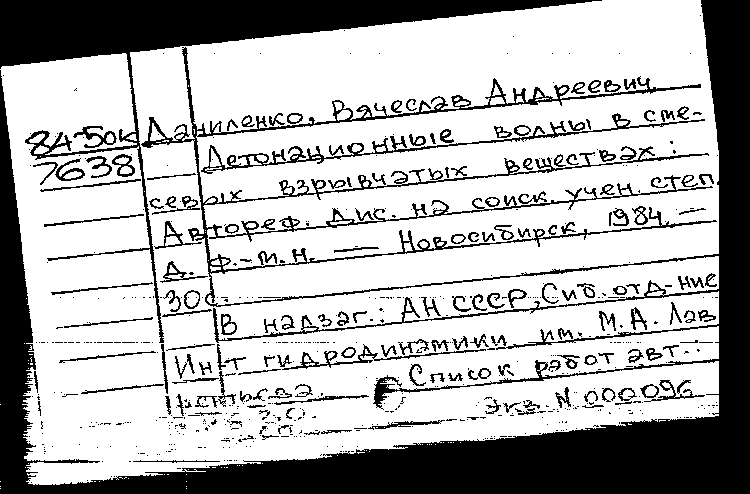 84-5ок
7638
Даниленко, Вячеслав Андреевич
Детонационные волны в сме-
севых взрывчатых веществах :
Автореф. дис. на соиск. учен. степ.
д. ф.-м.н. — Новосибирск, 1984. —
30с.
В надзаг.: АН СССР, Сиб. отд-ние
Ин-т гидродинамики им. М.А. Лав
рентьева. Список работ авт.:
Экз. N 000096